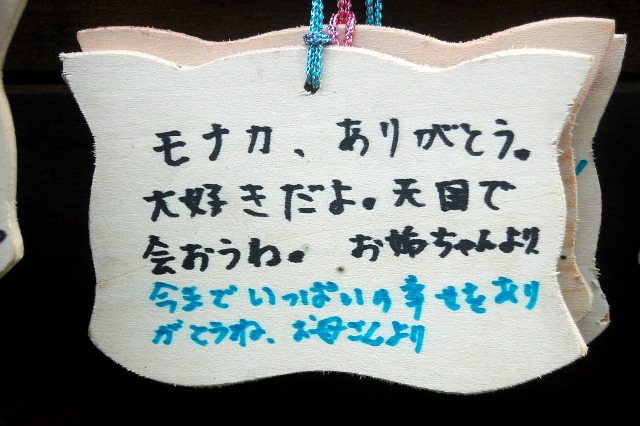 モナカ、ありがとう。
大好きだよ。天国で
会おうね。 お姉ちゃんより
今までいっぱいの幸せをあり
がとうね、お母さんより